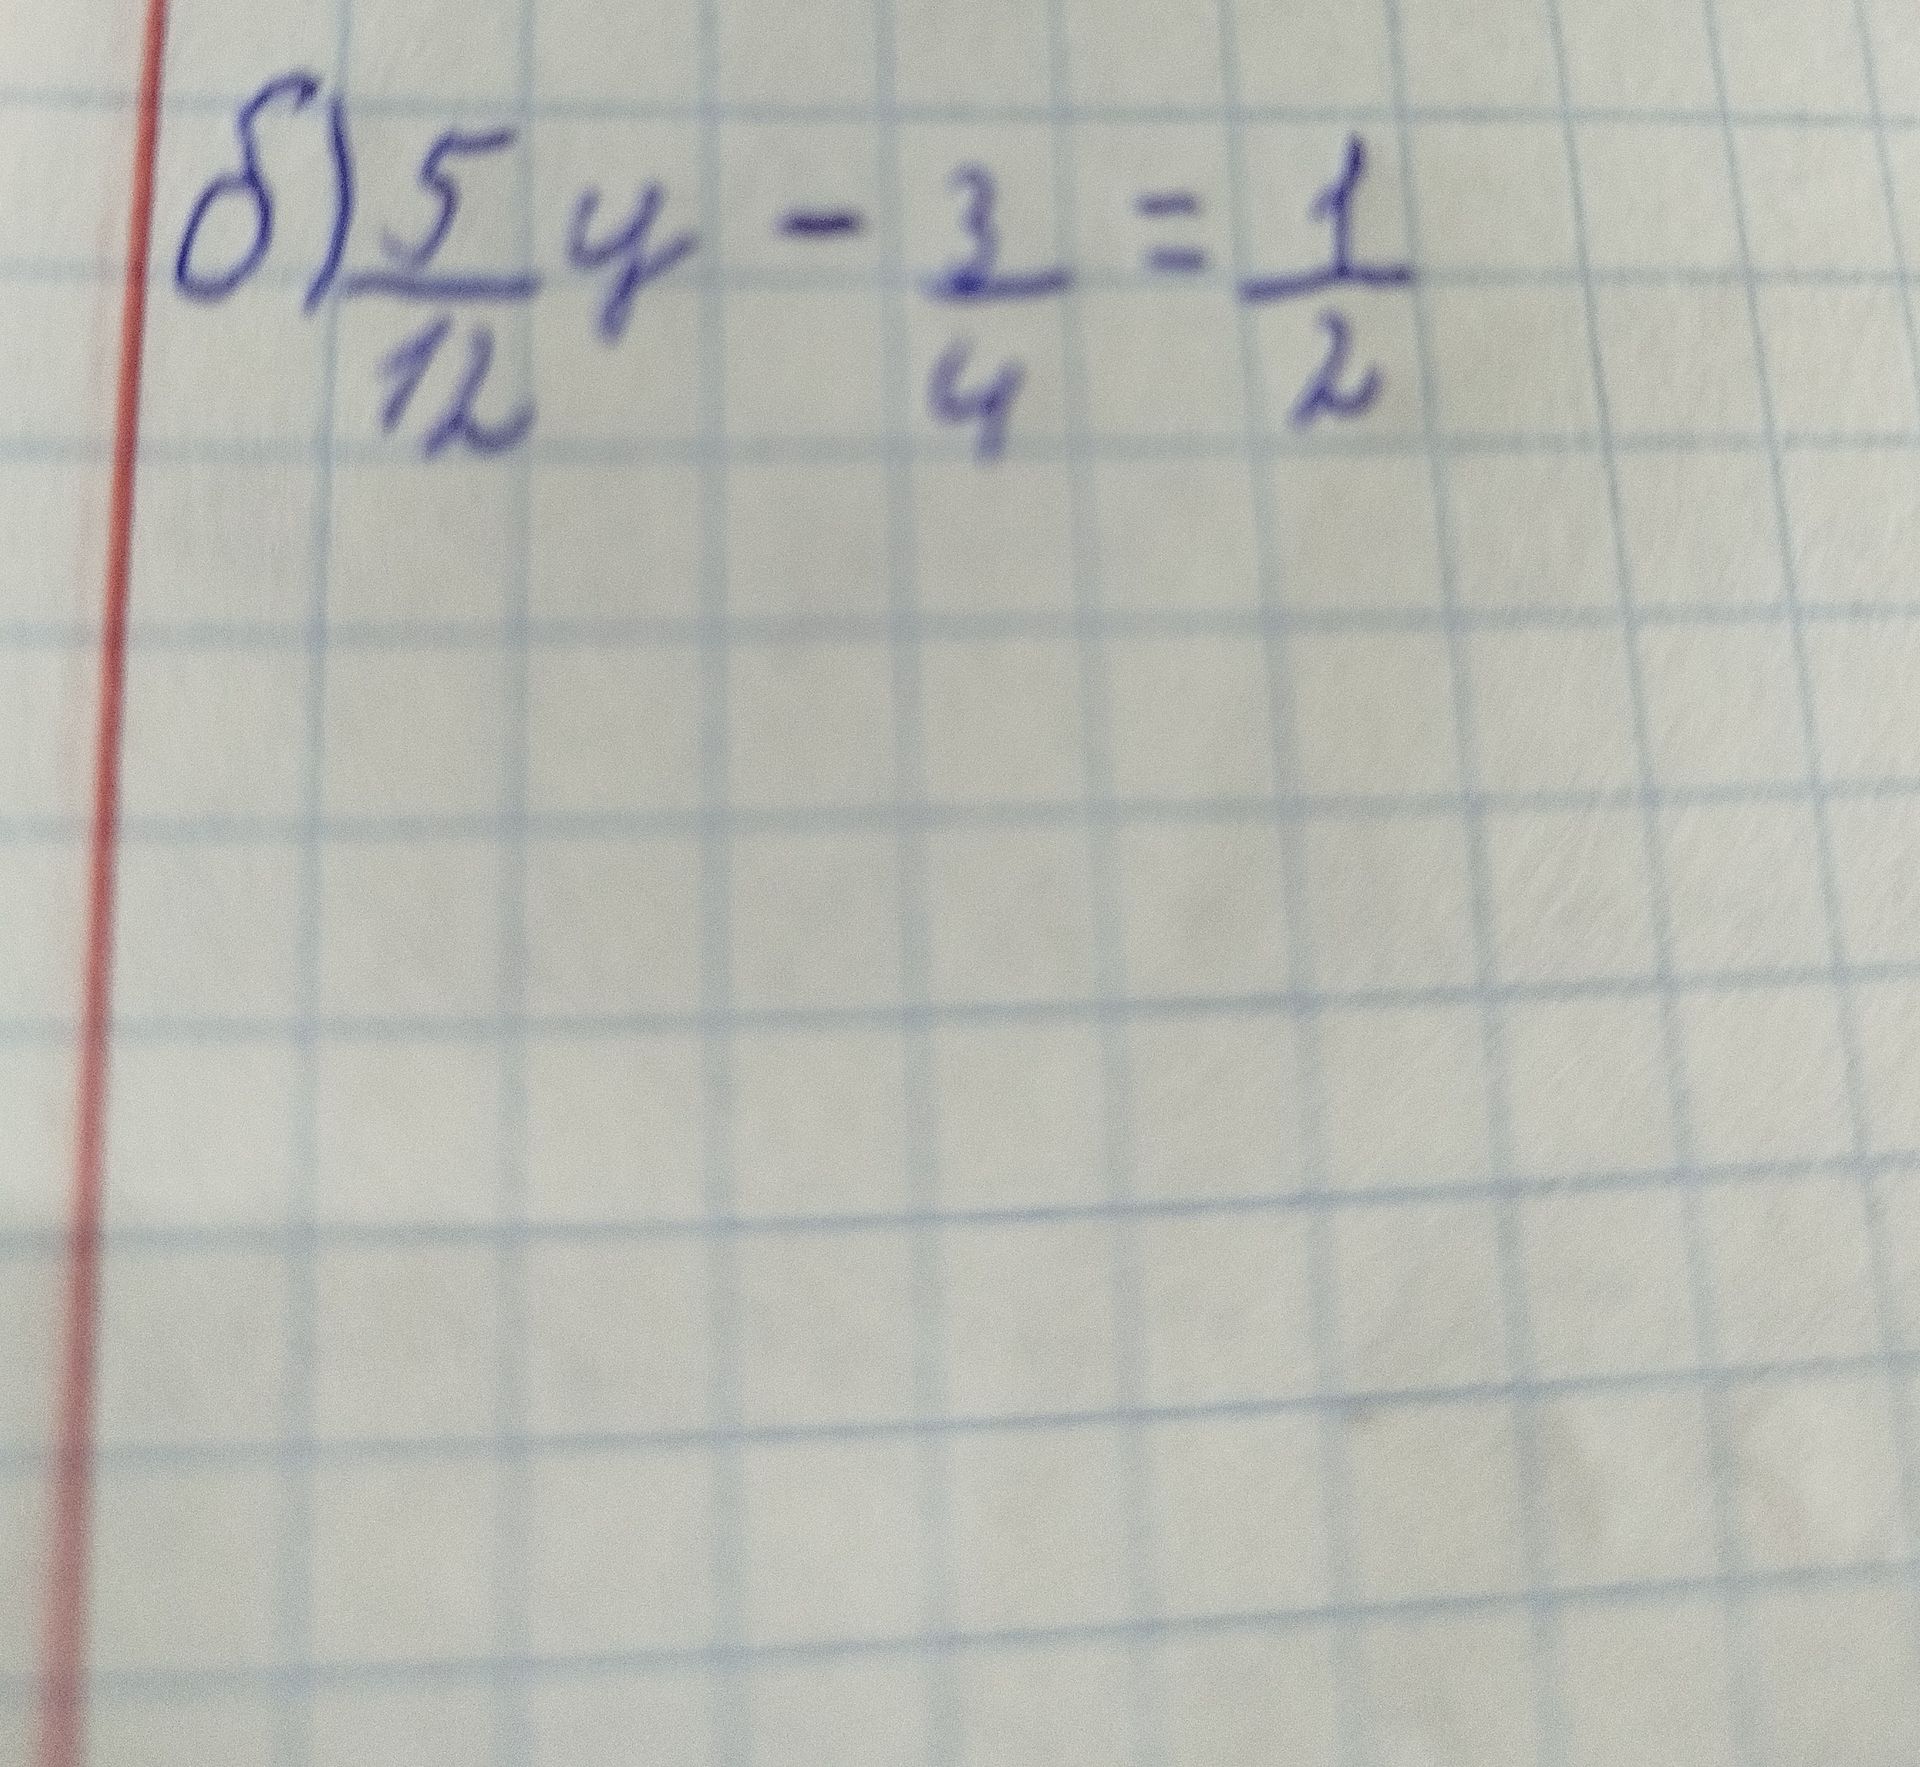 б) 5/12 y - 3/4 = 1/2